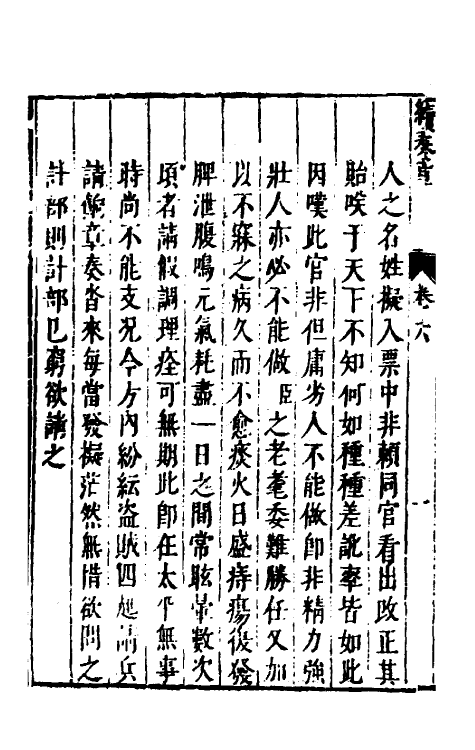 續奏草
卷六
人之名姓擬入票中非賴同官看出改正其
貽唉于天下不知何如種種差訛率皆如此
因嘆此官非但庸劣人不能做卽非精力強
壯人亦必不能做臣之老耄委難勝任又加
以不寐之病久而不愈痰火日盛痔瘍復發
脾泄腹鳴元氣耗盡一日之間常眩暈數次
頃者請假調理痊可無期此卽在太平無事
時尚不能支况今方內紛紜盜賊四起請兵
請餉章奏沓來每當發擬茫然無措欲問之
計部則計部已窮欲請之